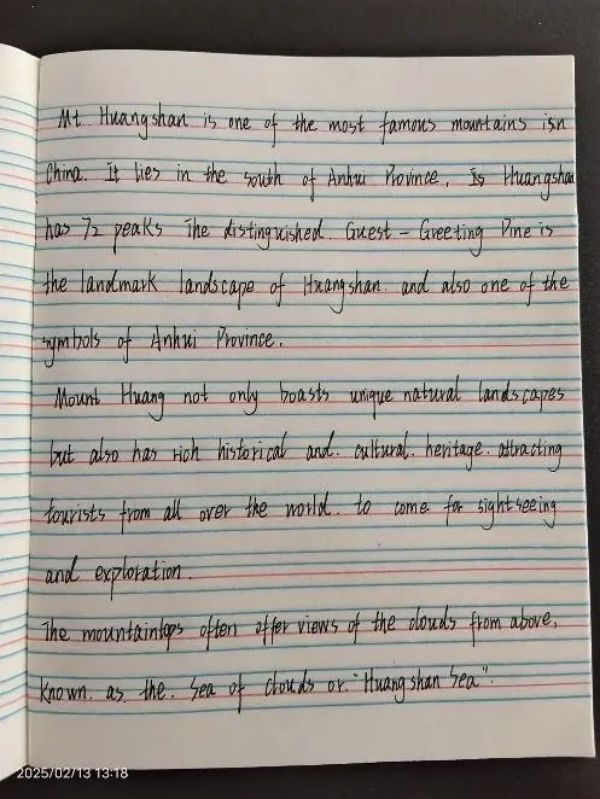 Mt Huangshan is one of the most famous mountains isn
China. It lies in the south of Anhui Province. Is Huangshan
has 72 peaks The distinguished. Guest - Greeting Pine is
the landmark landscape of Huangshan. and also one of the
symbols of Anhui Province.
Mount Huang not only boasts unique natural landscapes
but also has rich historical and. cultural. heritage. attracting
tourists from all over the world. to come for sightseeing
and exploration.
The mountaintops often offer views of the clouds from above.
Known. as. the. Sea of clouds or. "Huangshan Sea".
2025/02/13 13:18